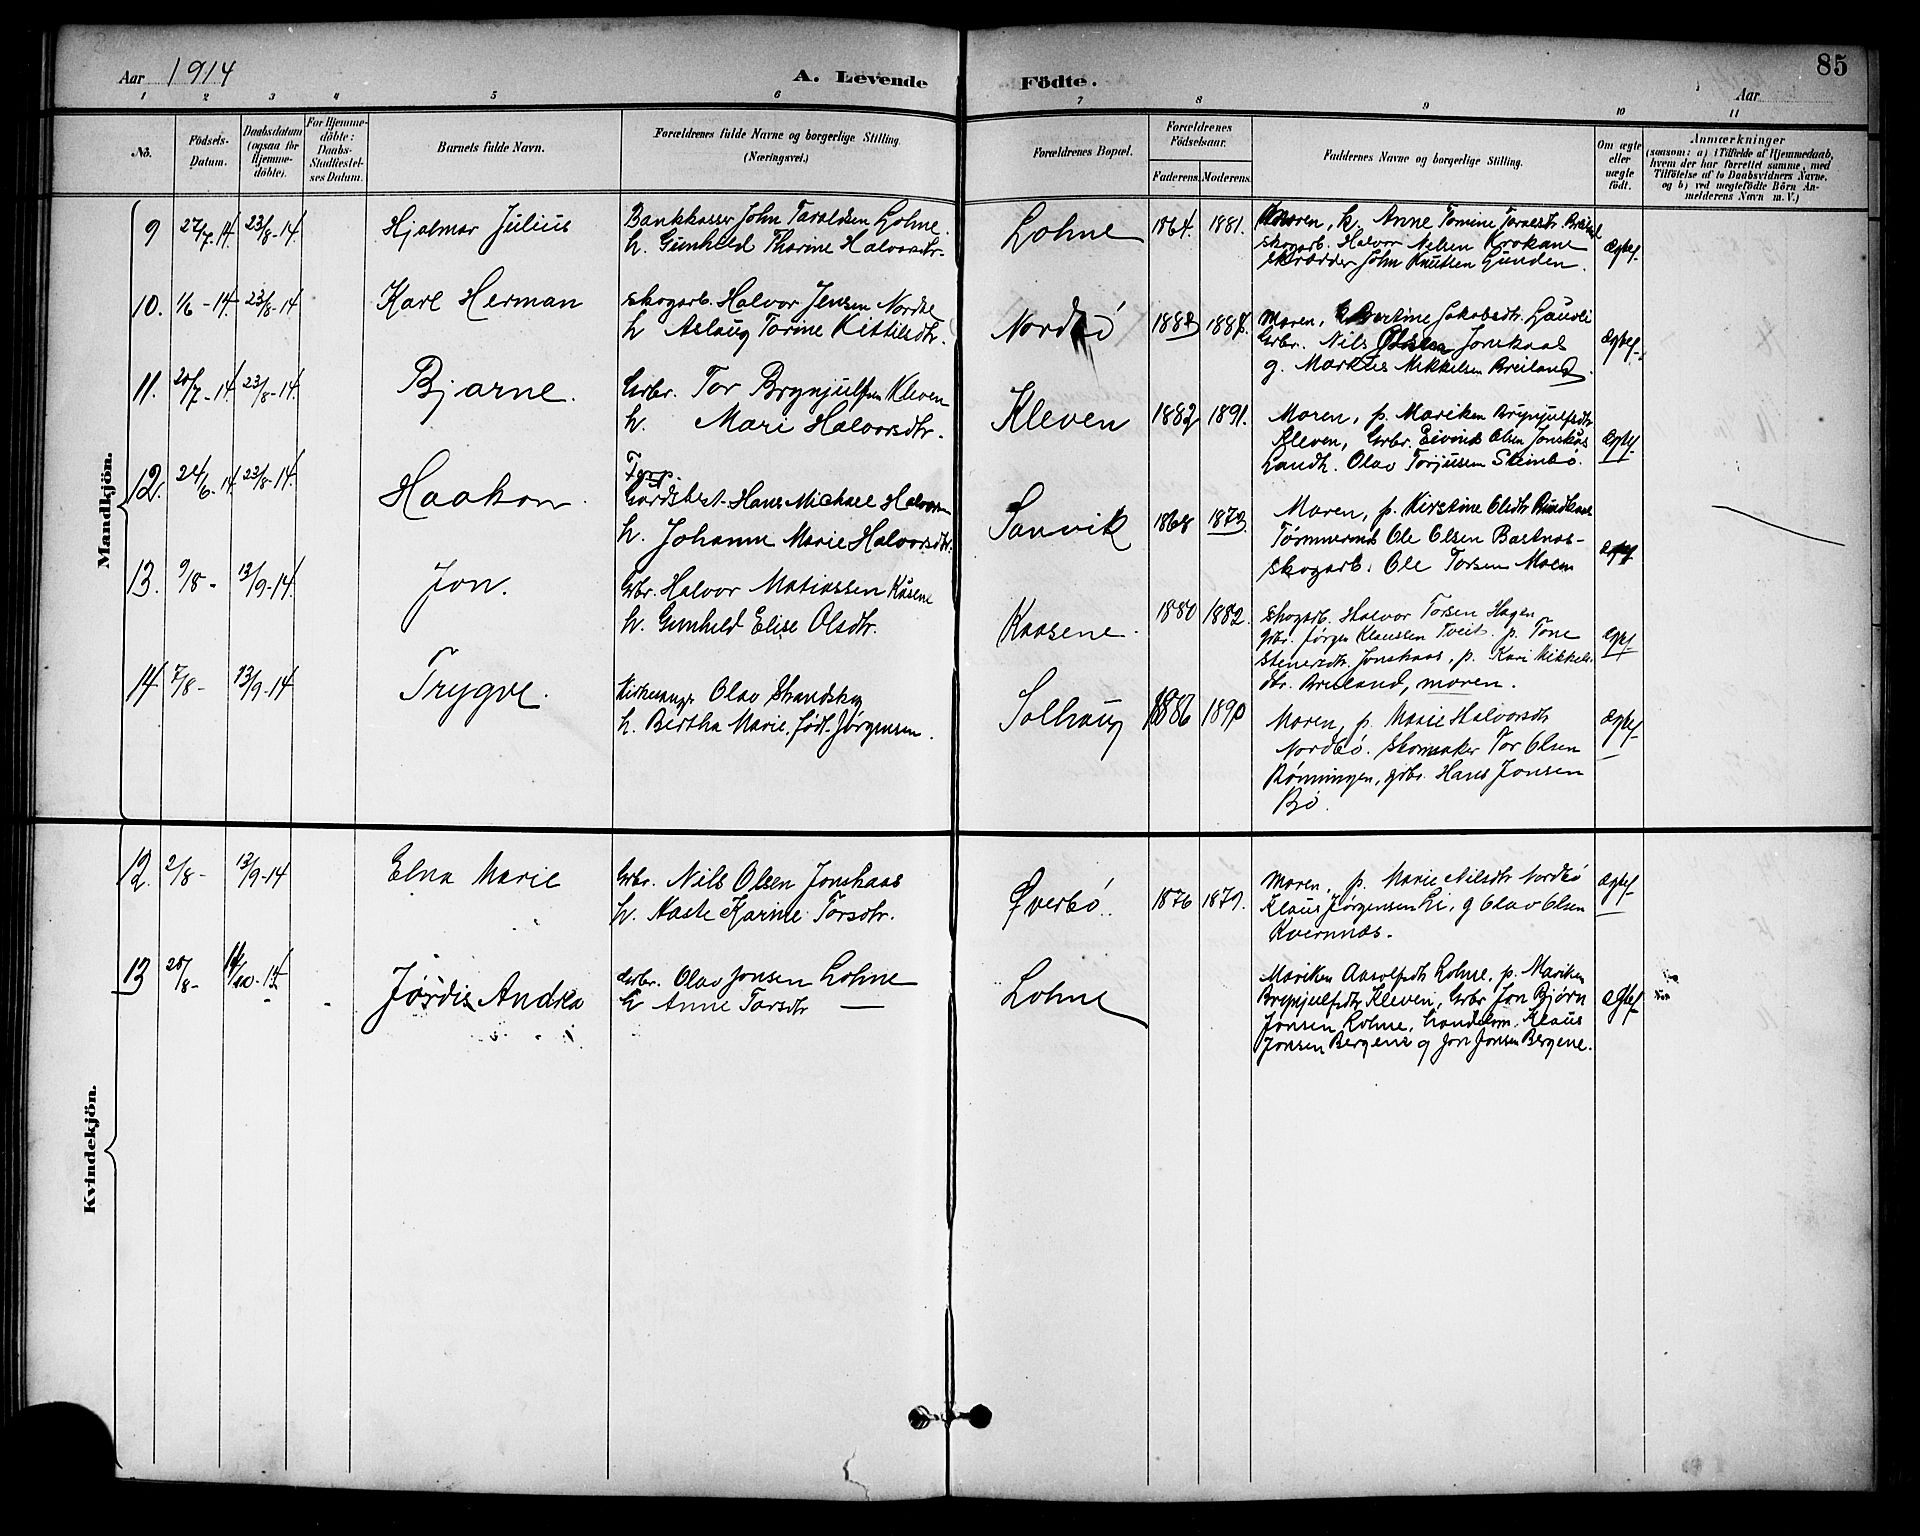 85
Aar 1914
A. Levende Födte.
Aar
1 2 3 4 5 6 7 8 9 10 11
Nö.
Födsels-
Datum.
Daabsdatum
(ogsaa for
Hjemme-
döbte).
For Hjemme-
döbte:
Daabs-
Stadfestel-
ses Datum.
Barnets fulde Navn.
Forældrenes fulde Navne og borgerlige Stilling
(Næringsvei.)
Forældrenes Bopæl.
Forældrenes
Födselsaar.
Faderens. Moderens.
Faddernes Navne og borgerlige Stilling.
Om ægte
eller
uægte
födt.
Anmærkninger
(saasom: a) i Tilfælde af Hjemmedaab,
hvem der har forrettet samme, med
Tilföielse af to Daabsvidners Navne,
og b) ved uægtefödte Börn An-
melderens Navn m. V.)
Mandkjön.
9 27/7-14. 23/8-14. Hjalmar Julius
Bankkasser John Taraldsen Lohne.
h. Gunhild Thorine Halvorsdtr.
Lohne 1864. 1881.
Moren, p. Anne Tomine Taraldsdtr
skogarb. Halvor Nilsen Krokane
skrædder John Knutsen Gunden.
ægtef.
10. 1/6-14. 23/8-14 Karl Herman
skogarb. Halvor Jensen Nordbø
h. Aslaug Torine Kittilsdtr.
Nordbø 1882 1888.
Moren, Jakobsdtr.
Grbr. Nils Olsen Jonskaas
g. Markus Mikkelsen Breiland
ægtef.
11. 20/7-14. 23/8-14. Bjarne.
Grbr. Tor Brynjulfsen Kleven
h. Mari Halvorsdtr.
Kleven 1882 1891.
Moren, p. Mariken Brynjulfsdtr
Kleven, Grbr. Eivind Olsen Jonskås
Landh. Olav Torjusen Steinbø.
ægtef
12. 24/6-14. 23/8-14. Haakon.
Gardsbest. Hans Michael Halvorsen
h. Johanne Marie Halvorsdtr.
Sanvik 1868 1873.
Moren, p. Kirstine Olsdtr
Tømmermd Ole Olsen
skogarb. Ole Torsen Moen
ægtef
13. 9/8- 13/9-14. Jon.
Grbr. Halvor Matiassen Kåsene
h. Gunhild Elise Olsdtr.
Kaasene. 1880 1882.
skogarb. Halvor Torsen Hagen
grbr. Jørgen Klaussen Tveit. p. Tone
Stenersdtr. Jonskaas, p. Kari Mikkels-
dtr. Breiland, moren.
ægtef
14 7/8- 13/9-14 Trygve.
Kirkesanger Olav Strandskog
h. Bertha Marie, født Jørgensen.
Solhaug 1886 1890
Moren, p. Marie Halvorsdtr
Nordbø. Skomaker Tor Olsen
Rønningen, grbr. Hans Jonsen
Bø.
ægtef
Kvindekjön.
12. 2/8- 13/9-14 Elna Marie
Grbr. Nils Olsen Jonskaas
h. Aaste Karine Torsdtr.
Øverbø. 1876 1879.
Moren, p. Marie Nilsdtr Nordbø
Klaus Jørgensen Li, g Olav Olsen
Kvernnæs.
ægtef
13 28/8- /10-14 Jørdis Andrea
Grbr. Olav Jonsen Lohne
h Anne Tarsdtr —
Lohne
Mariken Aasolfsdtr Lohne, p. Mariken
Brynjulfsdtr Kleven, Grbr Jon Bjørn
Jonsen Lohne, handelsm. Klaus
Jonsen Bergene g Jon Jonsen Bergene.
ægtef